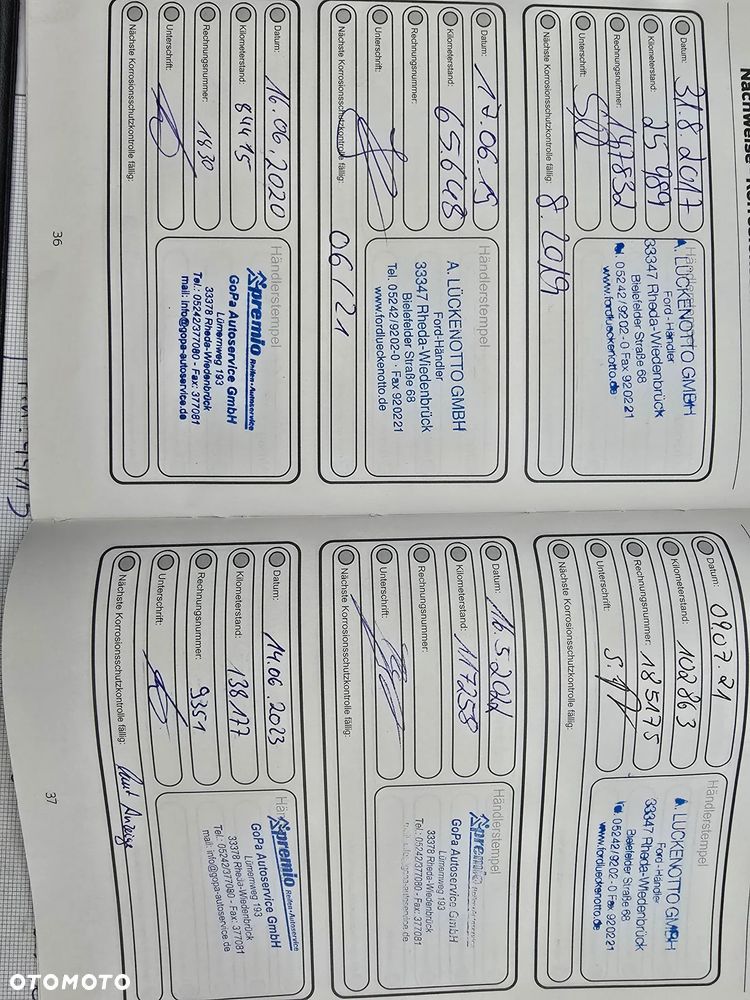 Datum: 31.8.2017
Kilometerstand: 25 989
Rechnungsnummer: 147832
Unterschrift:
Nächste Korrosionsschutzkontrolle fällig: 8. 2019
Händlerstempel
A. LÜCKENOTTO GMBH
Ford-Händler
Bielefelder Straße 68
33347 Rheda-Wiedenbrück
Tel. 05242/92 02 - 0 Fax 92 02 21
www.fordlueckenotto.de
Datum: 17.06.19
Kilometerstand: 65648
Rechnungsnummer:
Unterschrift:
Nächste Korrosionsschutzkontrolle fällig: 06/21
Händlerstempel
A. LÜCKENOTTO GMBH
Ford-Händler
33347 Rheda-Wiedenbrück
Bielefelder Straße 68
Tel. 05242/92 02-0 · Fax 92 02 21
www.fordlueckenotto.de
Datum: 16.06.2020
Kilometerstand: 84415
Rechnungsnummer: 1830
Unterschrift:
Nächste Korrosionsschutzkontrolle fällig:
Händlerstempel
premio Reifen-Autoservice
GoPa Autoservice GmbH
Lümernweg 193
33378 Rheda-Wiedenbrück
Tel.: 05242/377080 - Fax: 377081
mail: info@gopa-autoservice.de
36
Datum: 09.07.21
Kilometerstand: 102863
Rechnungsnummer: 185175
Unterschrift:
Nächste Korrosionsschutzkontrolle fällig:
Händlerstempel
A. LÜCKENOTTO GMBH
Ford-Händler
33347 Rheda-Wiedenbrück
Bielefelder Straße 68
Tel. 05242/92 02 - 0 Fax 92 02 21
www.fordlueckenotto.de
Datum: 16.5.2022
Kilometerstand: 117258
Rechnungsnummer:
Unterschrift:
Nächste Korrosionsschutzkontrolle fällig:
Händlerstempel
premio Reifen-Autoservice
GoPa Autoservice GmbH
Lümernweg 193
33378 Rheda-Wiedenbrück
Tel.: 05242/377080 - Fax: 377081
mail: info@gopa-autoservice.de
Datum: 14.06.2023
Kilometerstand: 138177
Rechnungsnummer: 9351
Unterschrift:
Nächste Korrosionsschutzkontrolle fällig: laut Anzeige
premio Reifen-Autoservice
GoPa Autoservice GmbH
Lümernweg 193
33378 Rheda-Wiedenbrück
Tel.: 05242/377080 - Fax: 377081
mail: info@gopa-autoservice.de
37
OTOMOTO